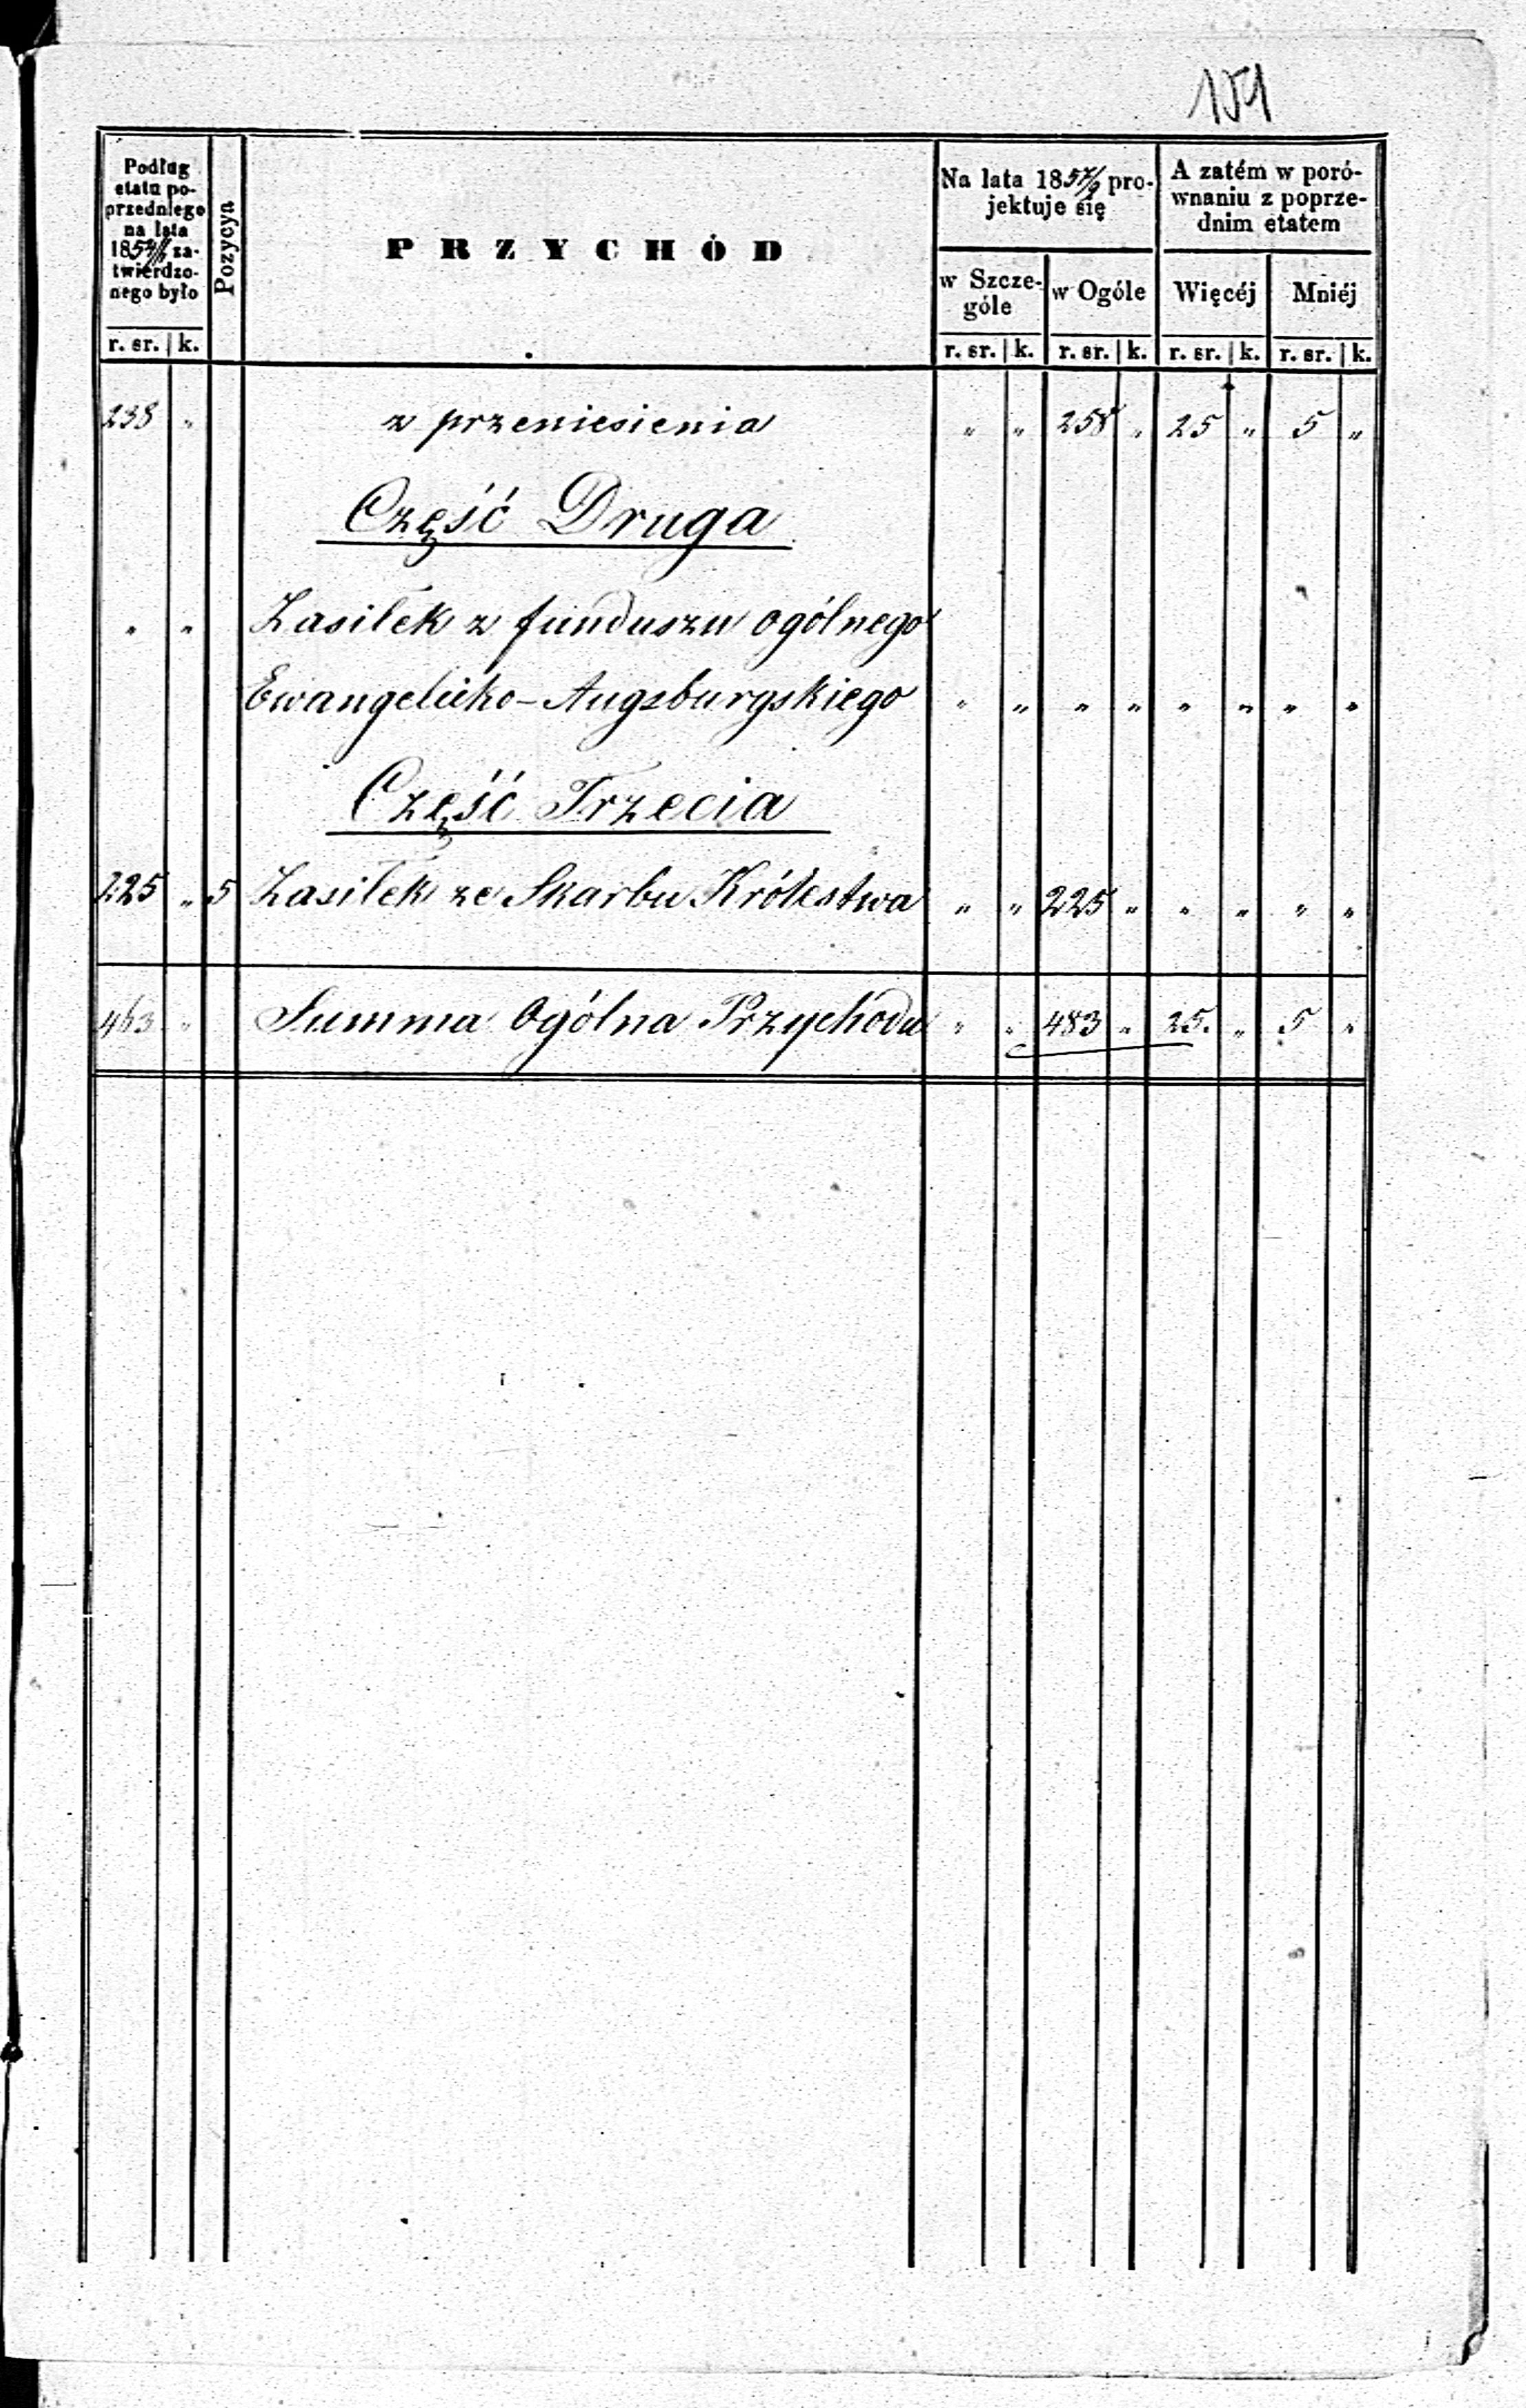 159
Podług etatu poprzedniego na lata 185 zatwierdzonego było
Pozycya
PRZYCHÓD
Na lata 1857/9 projektuje się
A zatém w porównaniu z poprzednim etatem
w Szczególe
w Ogóle
Więcéj
Mniéj
r. sr. | k. r. sr. | k. r. sr. | k. r. sr. | k. r. sr. | k.
238 " z przeniesienia " " 258 " 25 " 5 "
Część Druga
" " Zasiłek z funduszu ogólnego
Ewangelicko-Augsburgskiego " " " " " " " "
Część Trzecia
225 " 5 Zasiłek ze Skarbu Królestwa " " 225 " " " " "
463 " Summa Ogólna Przychodu " " 483 " 25. " 5 "